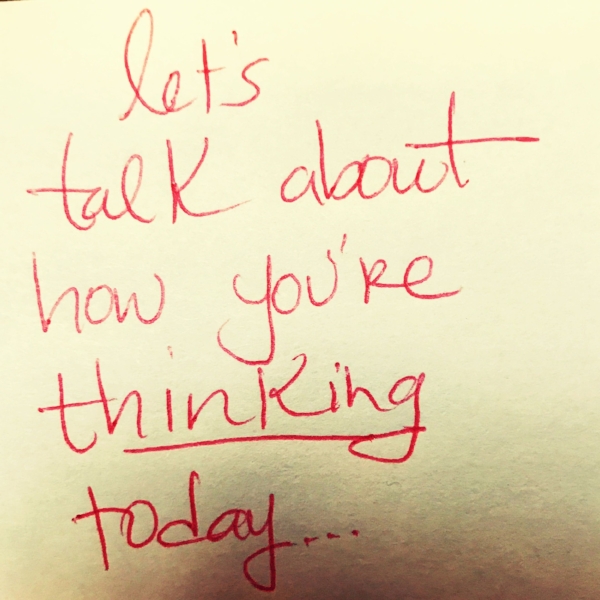 let's
talk about
how you're
thinking
today...